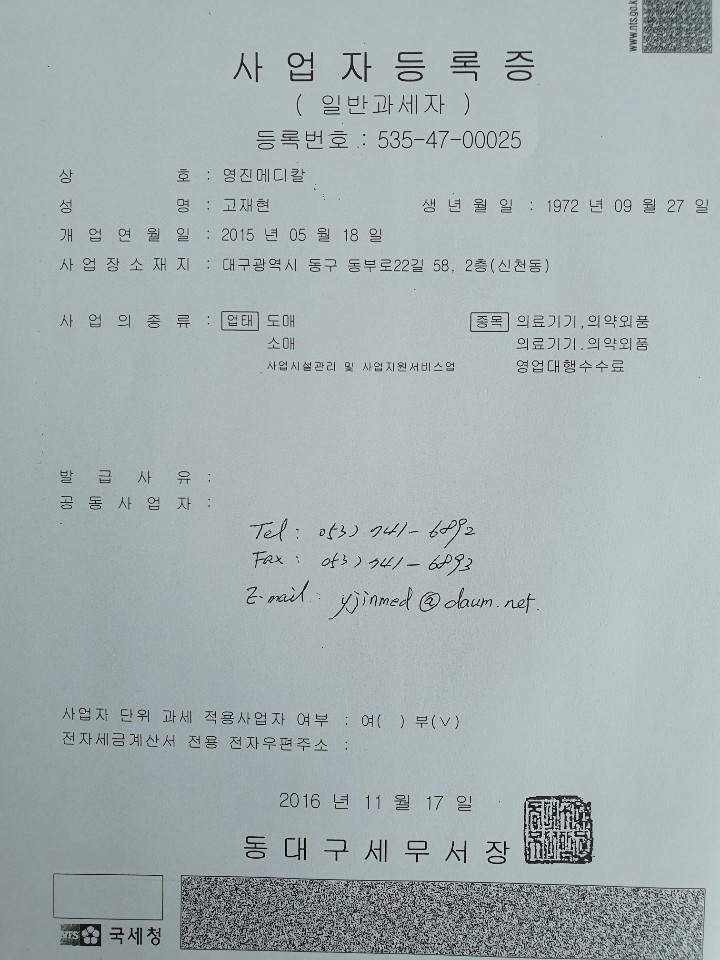 www.nts.go.k
사업자등록증
( 일반과세자 )
등록번호 : 535-47-00025
상 호 : 영진메디칼
성 명 : 고재현 생년월일 : 1972 년 09 월 27 일
개업연월일 : 2015 년 05 월 18 일
사업장소재지 : 대구광역시 동구 동부로22길 58, 2층(신천동)
사업의종류 : 업태 도매 종목 의료기기,의약외품
소매 의료기기.의약외품
사업시설관리 및 사업지원서비스업 영업대행수수료
발급사유 :
공동사업자 :
Tel : 053) 741-6892
Fax : 053) 741-6893
E-mail : yjinmed@daum.net.
사업자 단위 과세 적용사업자 여부 : 여( ) 부(∨)
전자세금계산서 전용 전자우편주소 :
2016 년 11 월 17 일
동대구세무서장
NTS 국세청